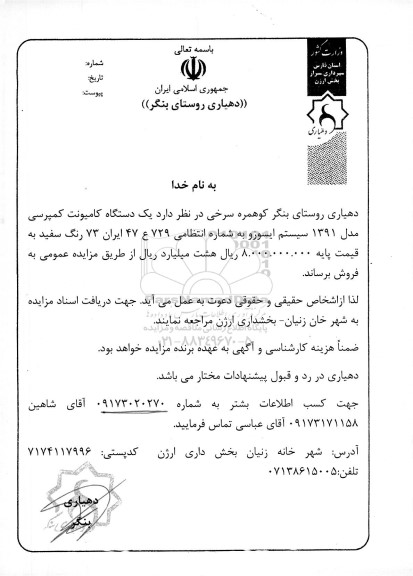 باسمه تعالی
جمهوری اسلامی ایران
((دهیاری روستای بنگر))
شماره:
تاریخ:
پیوست:
وزارت کشور
استان فارس
بخش ارژن
دهیاری
به نام خدا
دهیاری روستای بنگر کوهمره سرخی در نظر دارد یک دستگاه کامیونت کمپرسی
مدل ۱۳۹۱ سیستم ایسوزو به شماره انتظامی ۷۲۹ ع ۴۷ ایران ۷۳ رنگ سفید به
قیمت پایه ۸.۰۰۰.۰۰۰.۰۰۰ ریال هشت میلیارد ریال از طریق مزایده عمومی به
فروش برساند.
لذا ازاشخاص حقیقی و حقوقی دعوت به عمل می آید. جهت دریافت اسناد مزایده
به شهر خان زنیان- بخشداری ارژن مراجعه نمایند.
پایگاه اطلاع رسانی مناقصه و مزایده
۰۲۱-۸۸۳۴۹۶۷۰-۵
ضمناً هزینه کارشناسی و آگهی به عهده برنده مزایده خواهد بود.
دهیاری در رد و قبول پیشنهادات مختار می باشد.
جهت کسب اطلاعات بشتر به شماره ۰۹۱۷۳۰۲۰۲۷۰ آقای شاهین
۰۹۱۷۳۱۷۱۱۵۸ آقای عباسی تماس فرمایید.
آدرس: شهر خانه زنیان بخش داری ارژن کدپستی: ۷۱۷۴۱۱۷۹۹۶
تلفن:۰۷۱۳۸۶۱۵۰۰۵
دهیاری
بنگر